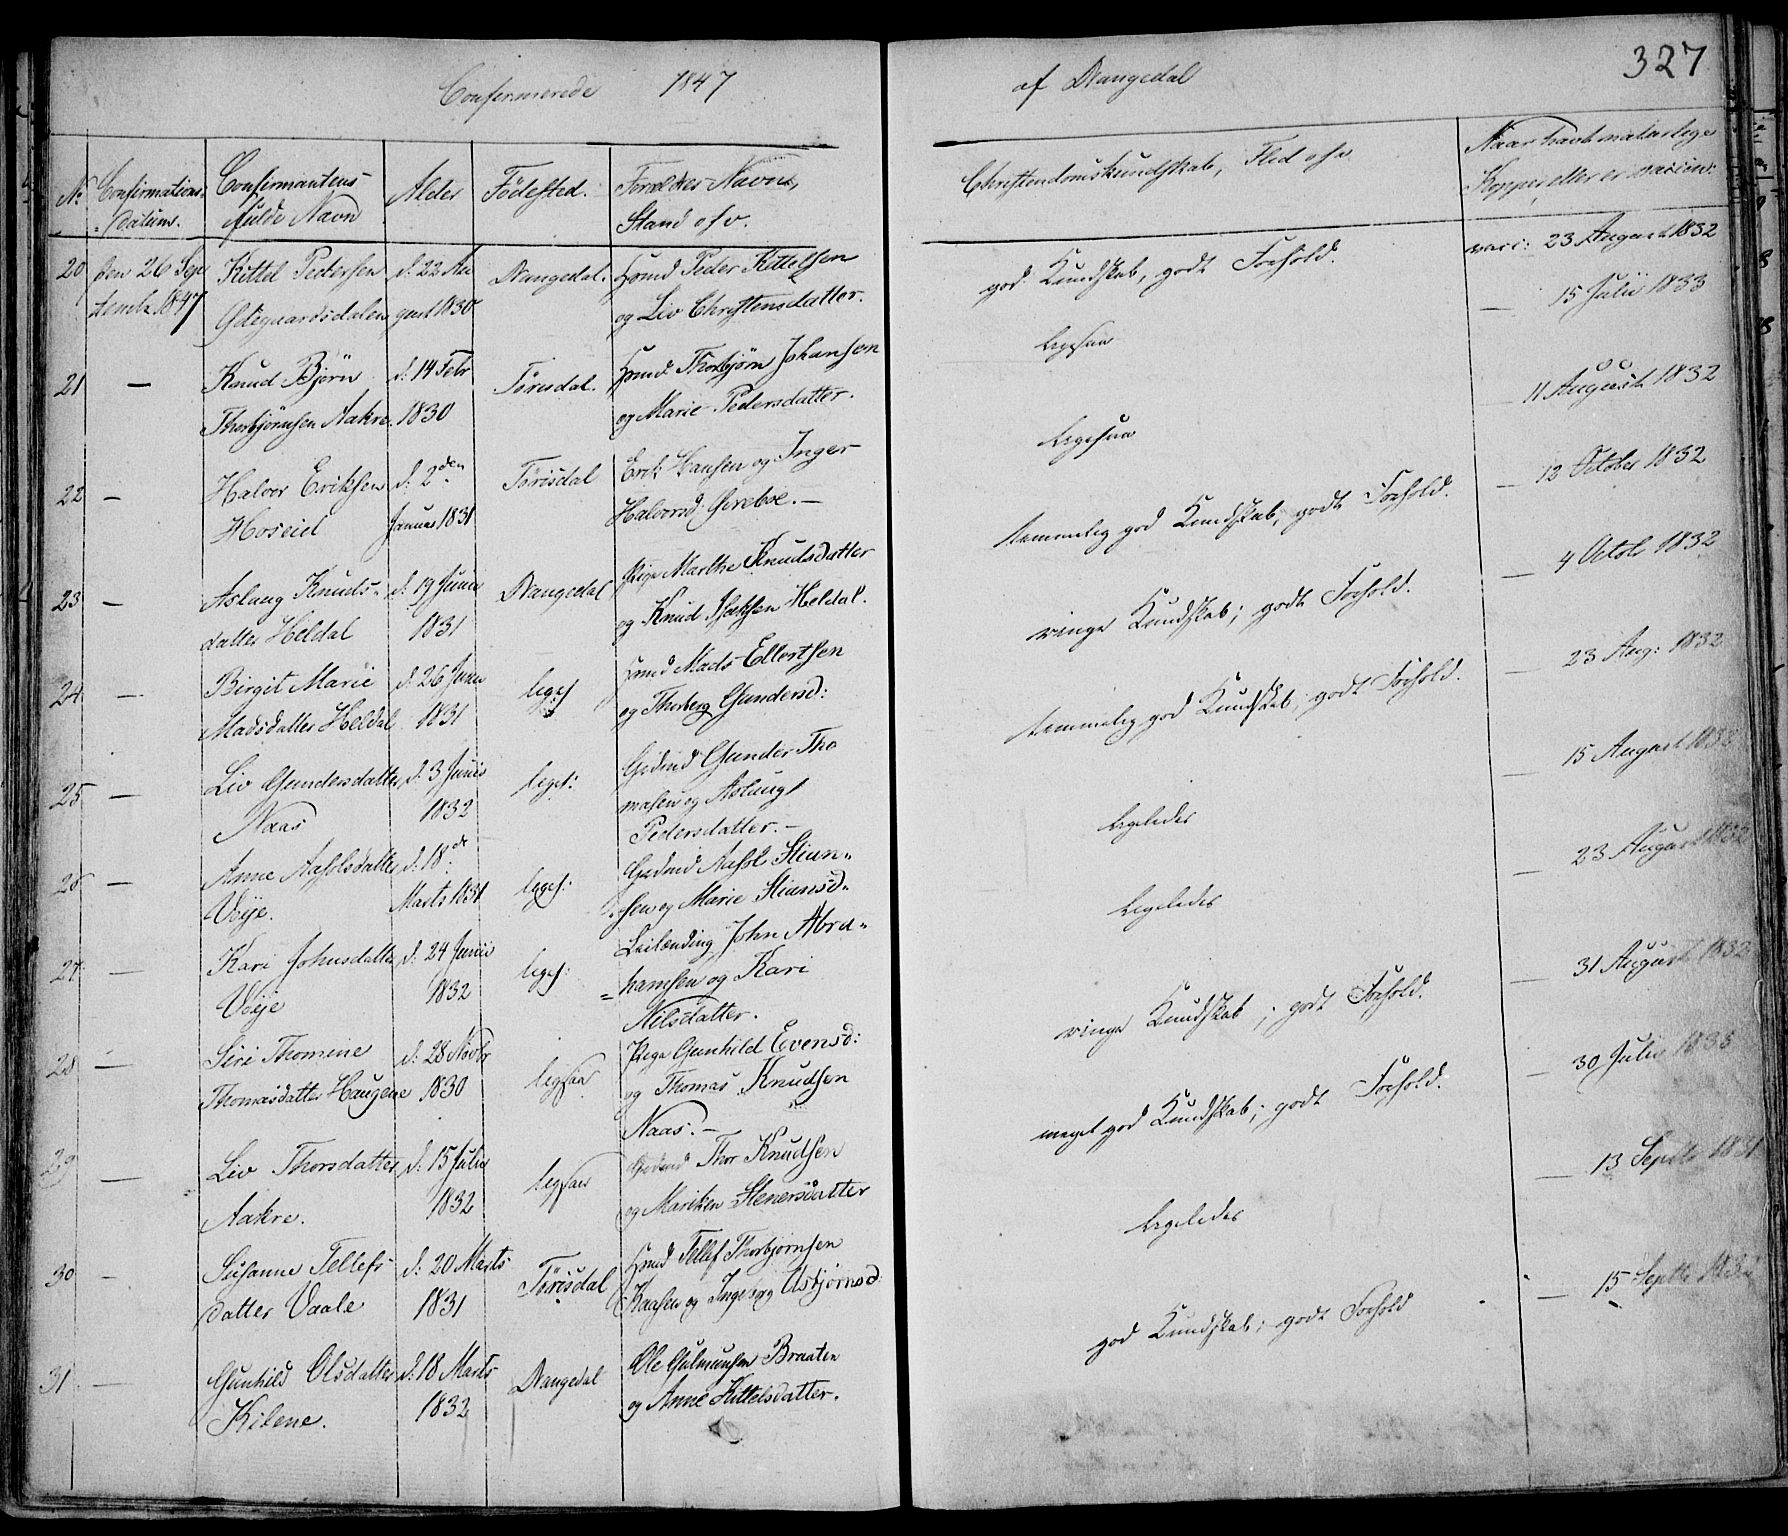 Confirmerede 1847 af Drangedal 327
No Confirmations- datum. Confirmantens fulde Navn Alder Fødested. Forældres Navne, Stand osv. Christendomskundskab, Flid osv. Naar havt naturlige Kopper, eller er vaccin:
20 den 26 Sep- Kittel Pedersen d. 22 Au- Drangedal. Gmd Peder Kittelsen god Kundskab, godt Forhold. vacc: 23 August 1832
temb. 1847 Ødegaardsdalen gust 1830 og Liv Christensdatter.
21 — Knud Bjørn d. 14 Febr Tørisdal. Gmd Thorbjørn Johansen ligesaa — 15 Julii 1833
Thorbjørnsen Aakre. 1830 og Marie Pedersdatter.
22 — Halvor Eriksen d. 2den Tørisdal Erik Hansen og Inger ligesaa 11 August 1832
Hoseid Januar 1831 Halvorsd.
23 — Aslaug Knuds- d. 19 Junii Drangedal Pige Marthe Knudsdatter temmelig god Kundskab, godt Forhold. — 13 October 1832
datter Heldal 1831 og Knud Heldal.
24 — Birgit Marie d. 26 Junii liges Gmd Mads Ellertsen ringe Kundskab; godt Forhold. — 4 Octob 1832
Madsdatter Heldal 1831 og Thorberg Gundersd:
25 — Liv Gundersdatter d. 3 Junii liges: Gunder Tho temmelig god Kundskab, godt Forhold. — 23 Aug: 1832
Naas 1832 masen og Aslaug
Pedersdatter. —
26 — Anne d. 18de liges: Stian- ligeledes — 15 August
Voje. Marts 1831 sen og Marie Stiansd-
27 — Kari Johnsdatter d. 24 Junii liges: Leilænding John Abra- ligeledes — 23 August 1832
Voje 1832 hamsen og Kari
Nilsdatter.
28 — Siri Thomine d. 28 Novbr ligesaa Pige Gunhild Evensd: ringe Kundskab; godt Forhold. — 31 August 1832
Thomasdatter Haugene 1830 og Thomas Knudsen
Naas. —
29 — Liv Thorsdatter d. 15 Julii ligesaa Thor Knudsen meget god Kundskab; godt Forhold. — 30 Julii
Aakre. 1832 og Mariken Stenersdatter
30 — Susanne Tellefs- d. 20 Marts Tørisdal Gmd Tellef Thorbjørnsen ligeledes — 13 Septb 1831
datter Vaale 1831 Kaasen og Ingeborg Asbjørnsd:
31 — Gunhild Olsdatter d. 18 Marts Drangedal Ole Braaten god Kundskab; godt Forhold — 15 Septb
Kilene. 1832 og Anne Kittelsdatter.